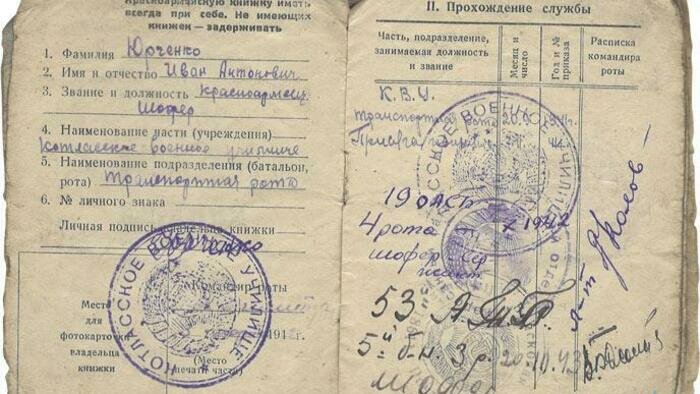 Красноармейскую книжку иметь
всегда при себе. Не имеющих
книжек — задерживать
1. Фамилия Юрченко
2. Имя и отчество Иван Антонович
3. Звание и должность красноармеец
шофер
4. Наименование части (учреждения)
Котласское военное училище
5. Наименование подразделения (батальон,
рота) транспортная рота
6. № личного знака
Личная подпись владельца книжки
Юрченко
КОТЛАССКОЕ ВОЕННОЕ УЧИЛИЩЕ
Командир роты
Место
для
фотокарточки
владельца
книжки
(Место
печати части)
II. Прохождение службы
Часть, подразделение,
занимаемая должность
и звание
Месяц и
число
Год и №
приказа
Расписка
командира
роты
К.В.У.
транспортная рота 20.9
19 оастр
4 рота X 1942
шофер
53
5й б-н. 3 р. 20.10.43
Шофер